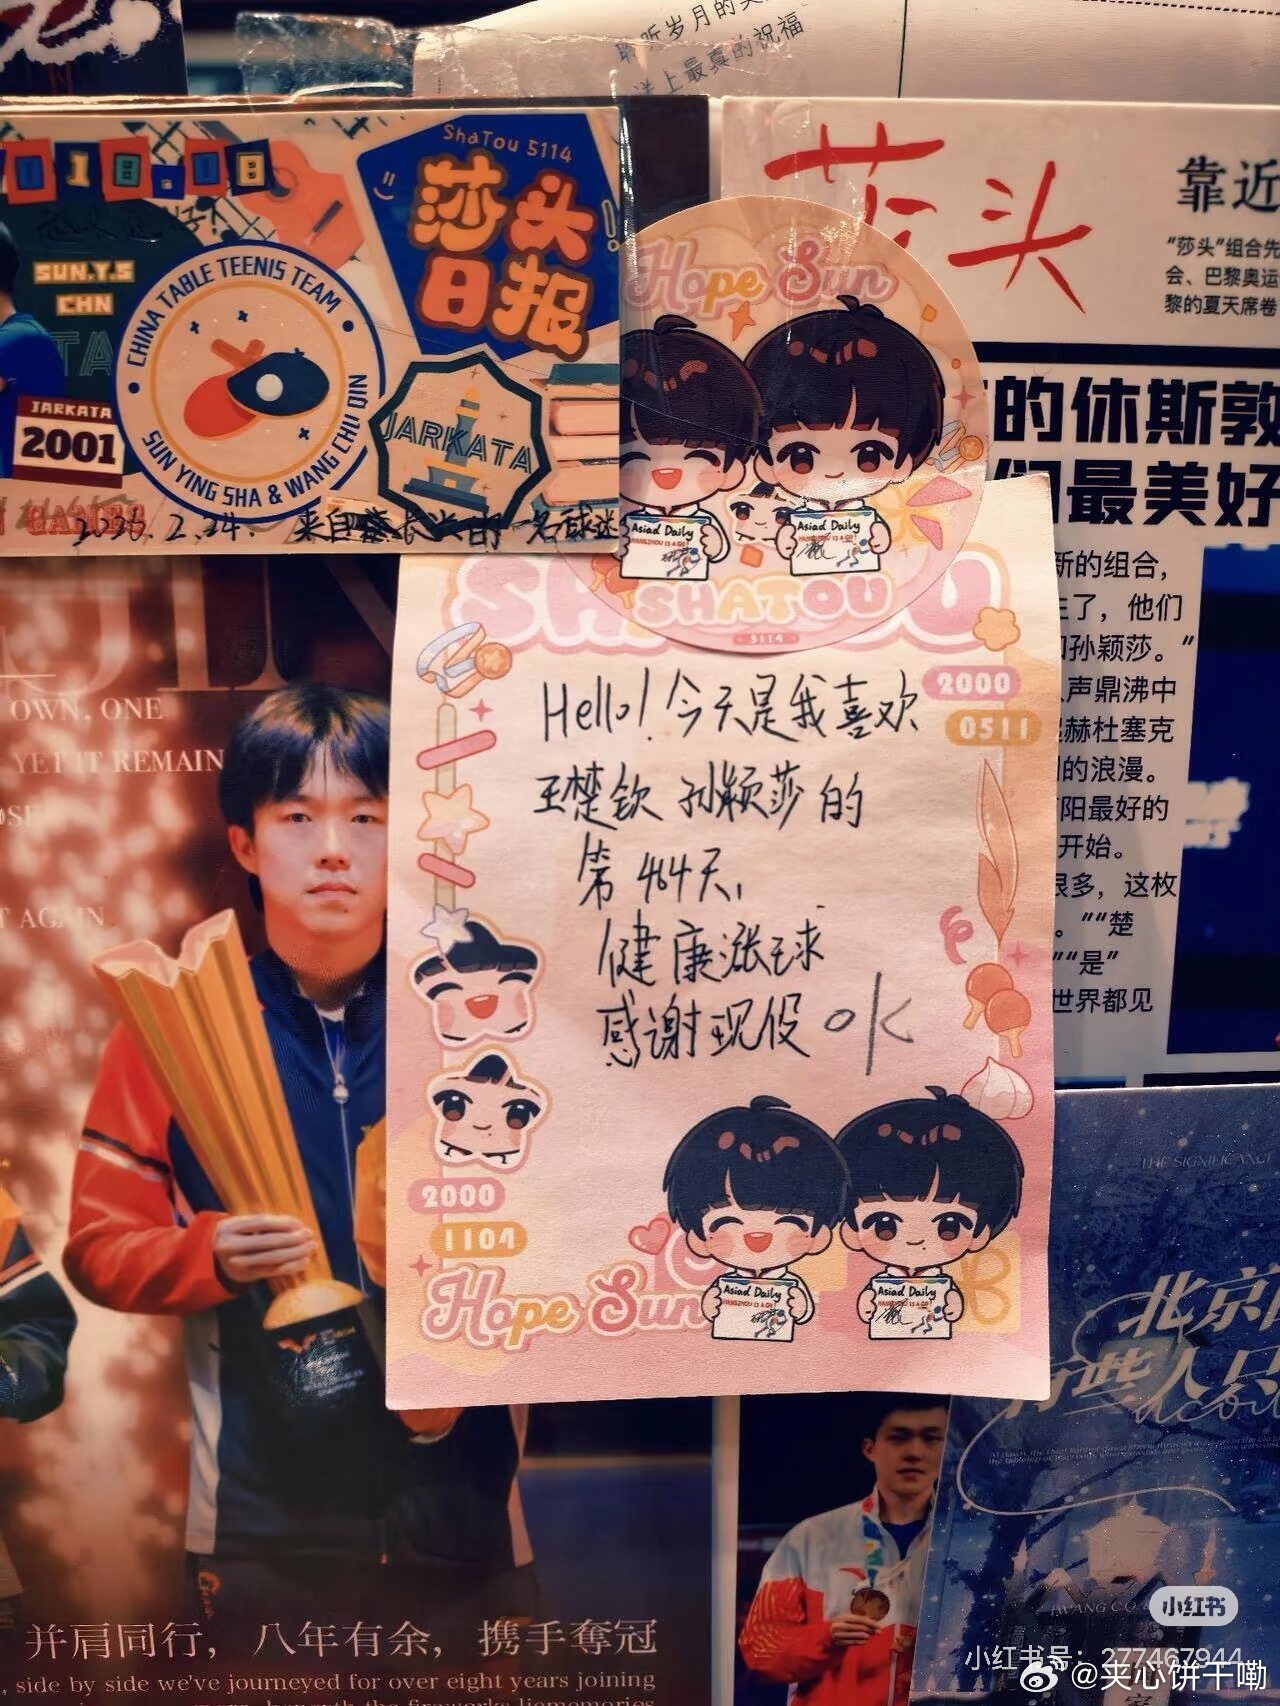 聆听岁月的
送上最真的祝福
18.18
ShaTou 5114
莎头
日报
SUN.Y.S
CHN
JARKATA
2001
CHINA TABLE TEENIS TEAM
SUN YING SHA & WANG CHU QIN
JARKATA
2026.2.24. 来自
的一名球迷
Hope Sun
Asiad Daily
HANGZHOU IS A GO!
Asiad Daily
SHATOU
5114
莎头
靠近
“莎头”组合先
会、巴黎奥运
黎的夏天席卷
的休斯敦
们最美好
新的组合，
生了，他们
和孙颖莎。“
声鼎沸中
赫杜塞克
的浪漫。
阳最好的
开始。
很多，这枚
。”“楚
”“是”
世界都见
2000
0511
Hello！今天是我喜欢
王楚钦 孙颖莎 的
第 464天，
健康涨球
感谢现役 OK
2000
1104
Hope Sun
Asiad Daily
HANGZHOU IS A GO!
Asiad Daily
HANGZHOU IS A GO!
OWN, ONE
YET IT REMAIN
T AGAIN
并肩同行，八年有余，携手夺冠
side by side we've journeyed for over eight years joining
THE SIGNIFICANCE
北京
有些人只
小红书
小红书号：277467944
@夹心饼干嘞